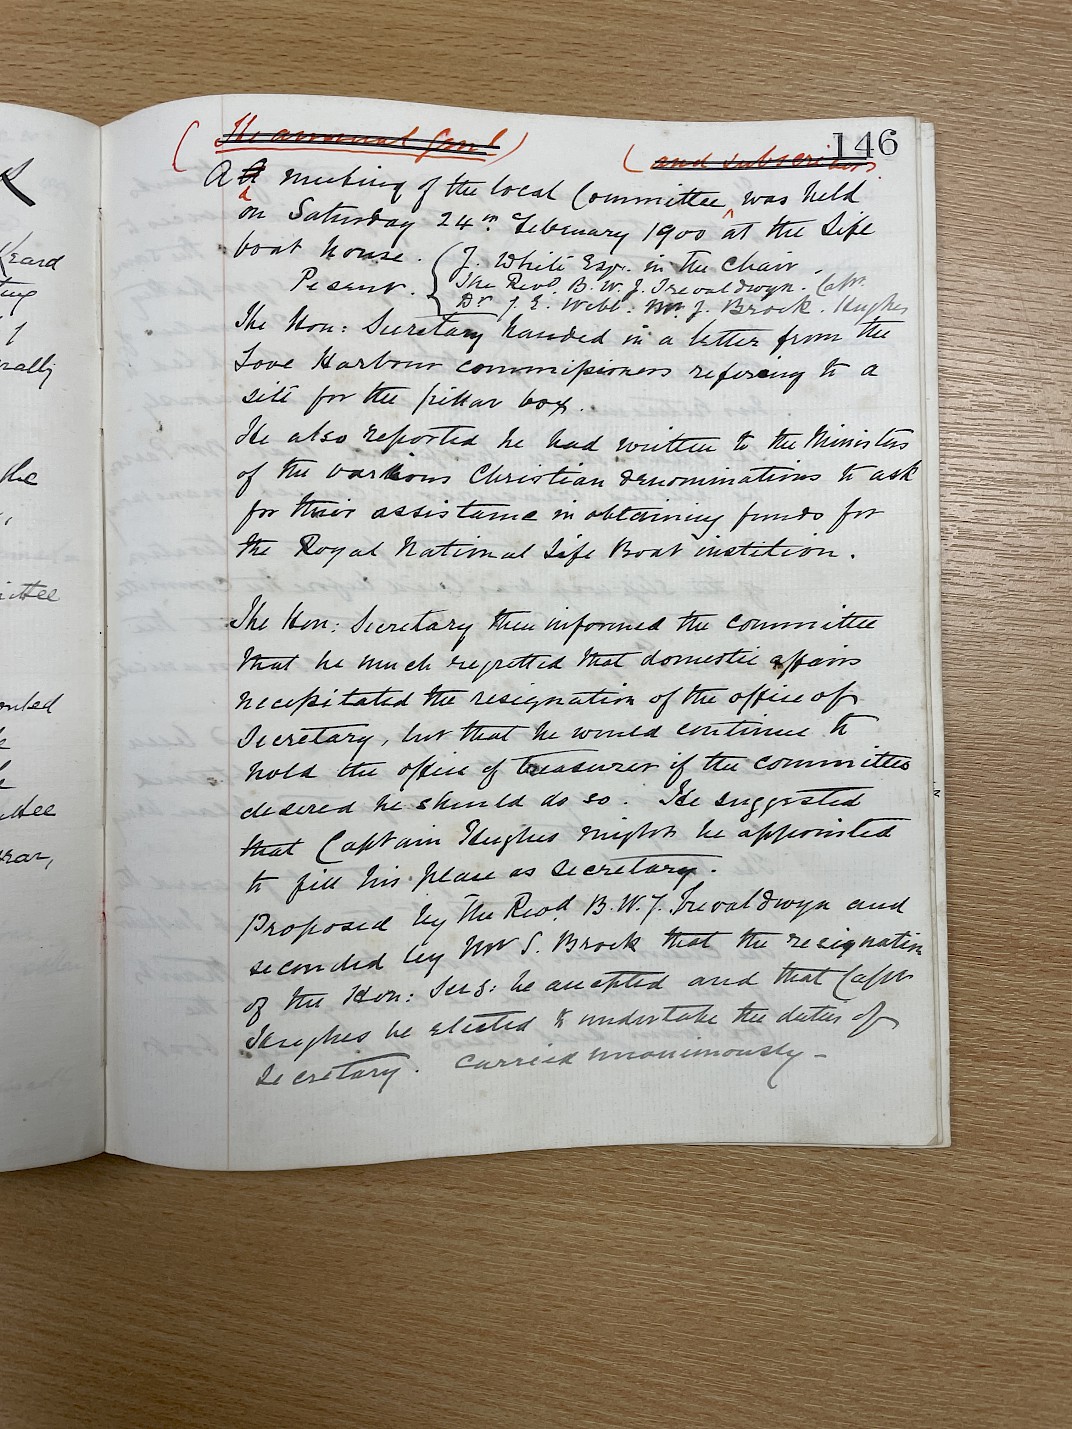 146
(The annual Genl)
(and subscribers)
A meeting of the local Committee was held
on Saturday 24th February 1900 at the Life
boat house.
J. White Esqr. in the Chair.
Present. The Revd. B. W. J. Trevaldwyn. Capn.
Dr J. E. Webb. Mr J. Brock. Hughes
The Hon: Secretary handed in a letter from the
Looe Harbour commissioners refering to a
site for the pillar box.
He also reported he had written to the Ministers
of the various Christian denominations to ask
for their assistance in obtaining funds for
the Royal National Life Boat instition.
The Hon: Secretary then informed the committee
that he much regretted that domestic affairs
necessitated the resignation of the office of
Secretary, but that he would continue to
hold the office of treasurer if the committee
desired he should do so. He suggested
that Captain Hughes might be appointed
to fill his place as secretary.
Proposed by The Revd. B. W. J. Trevaldwyn and
seconded by Mr S. Brock that the resignation
of the Hon: Sec: be accepted and that Capn
Hughes be elected to undertake the duties of
Secretary. Carried unanimously -